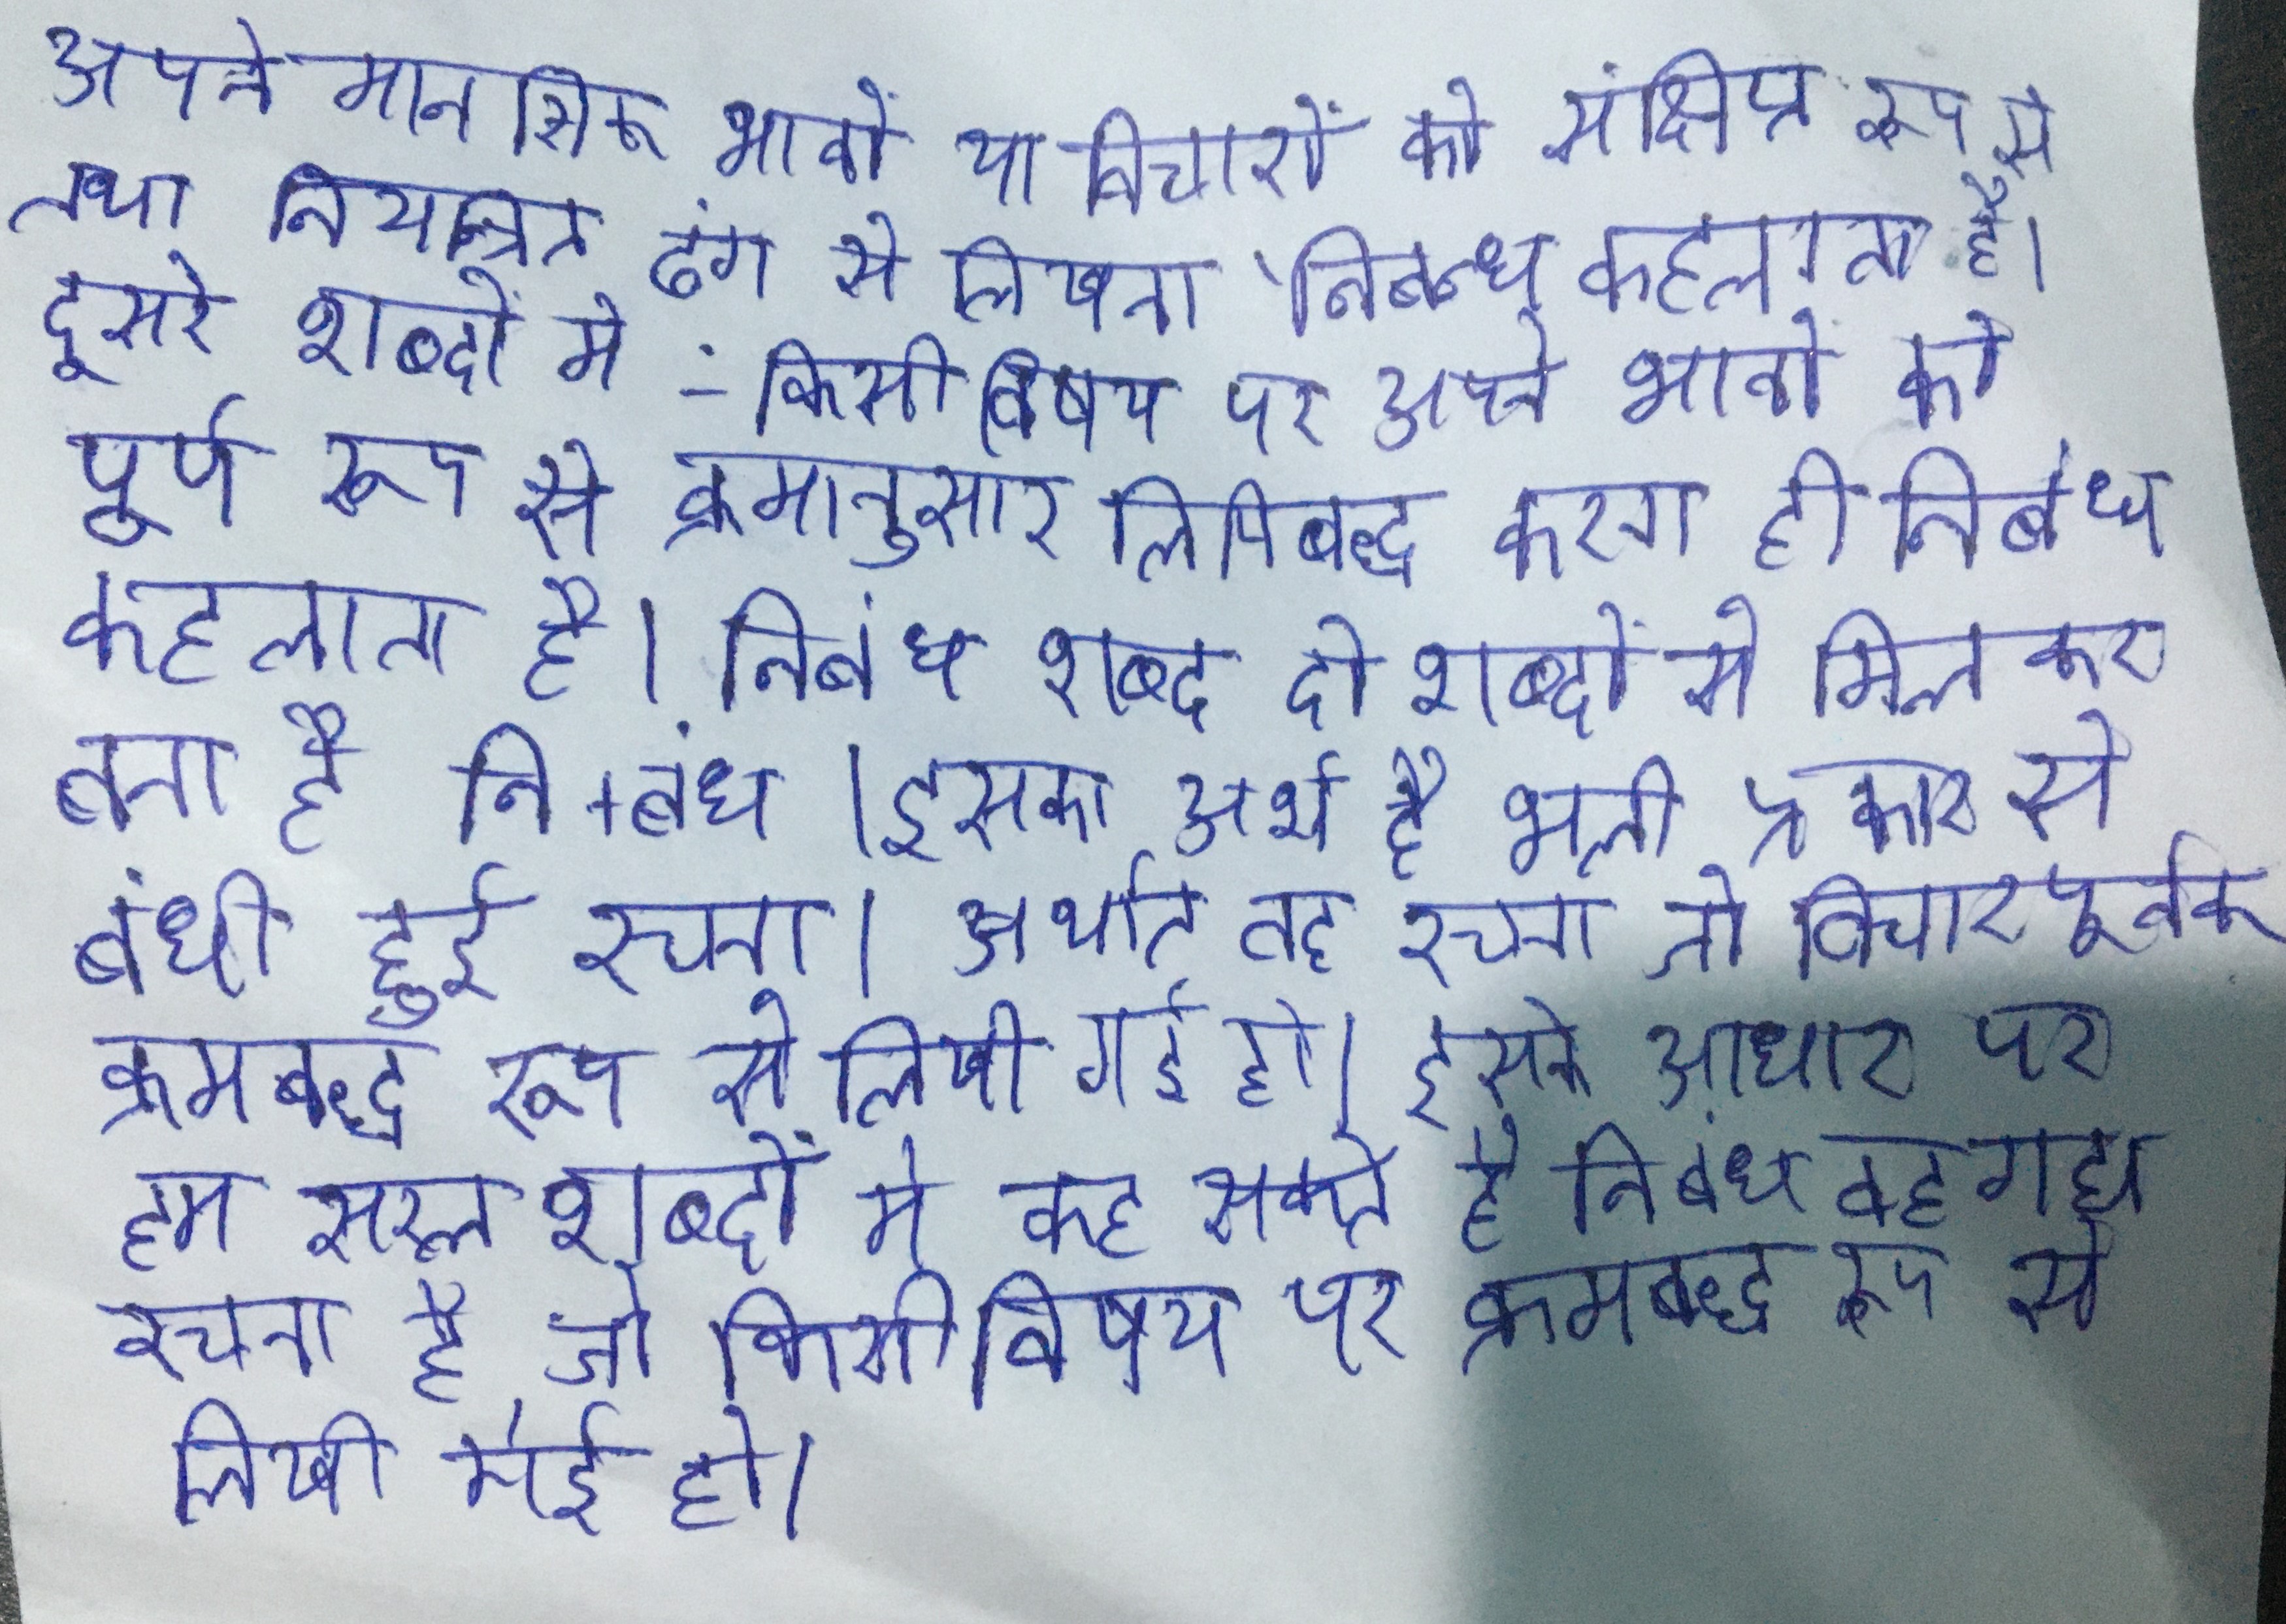 अपने मानसिक भावों या विचारों को संक्षिप्त रूप से
तथा नियन्त्रित ढंग से लिखना 'निबन्ध' कहलाता है।
दूसरे शब्दों में :- किसी विषय पर अपने भावों को
पूर्ण रूप से क्रमानुसार लिपिबद्ध करना ही निबंध
कहलाता है। निबंध शब्द दो शब्दों से मिलकर
बना है नि+बंध । इसका अर्थ है भली प्रकार से
बंधी हुई रचना। अर्थात वह रचना जो विचारपूर्वक
क्रमबद्ध रूप से लिखी गई हो। इसके आधार पर
हम सरल शब्दों में कह सकते है निबंध वह गद्य
रचना है, जो किसी विषय पर क्रमबद्ध रूप से
लिखी गई हो।